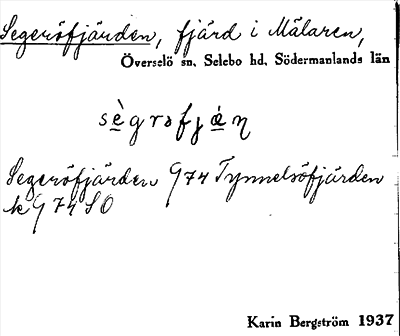 Segeröfjärden, fjärd i Mälaren,
Överselö sn, Selebo hd, Södermanlands län
sègrəfjæ̀ṇ
Segeröfjärden G74 Tynnelsöfjärden
k G 74 SO
Karin Bergström 1937